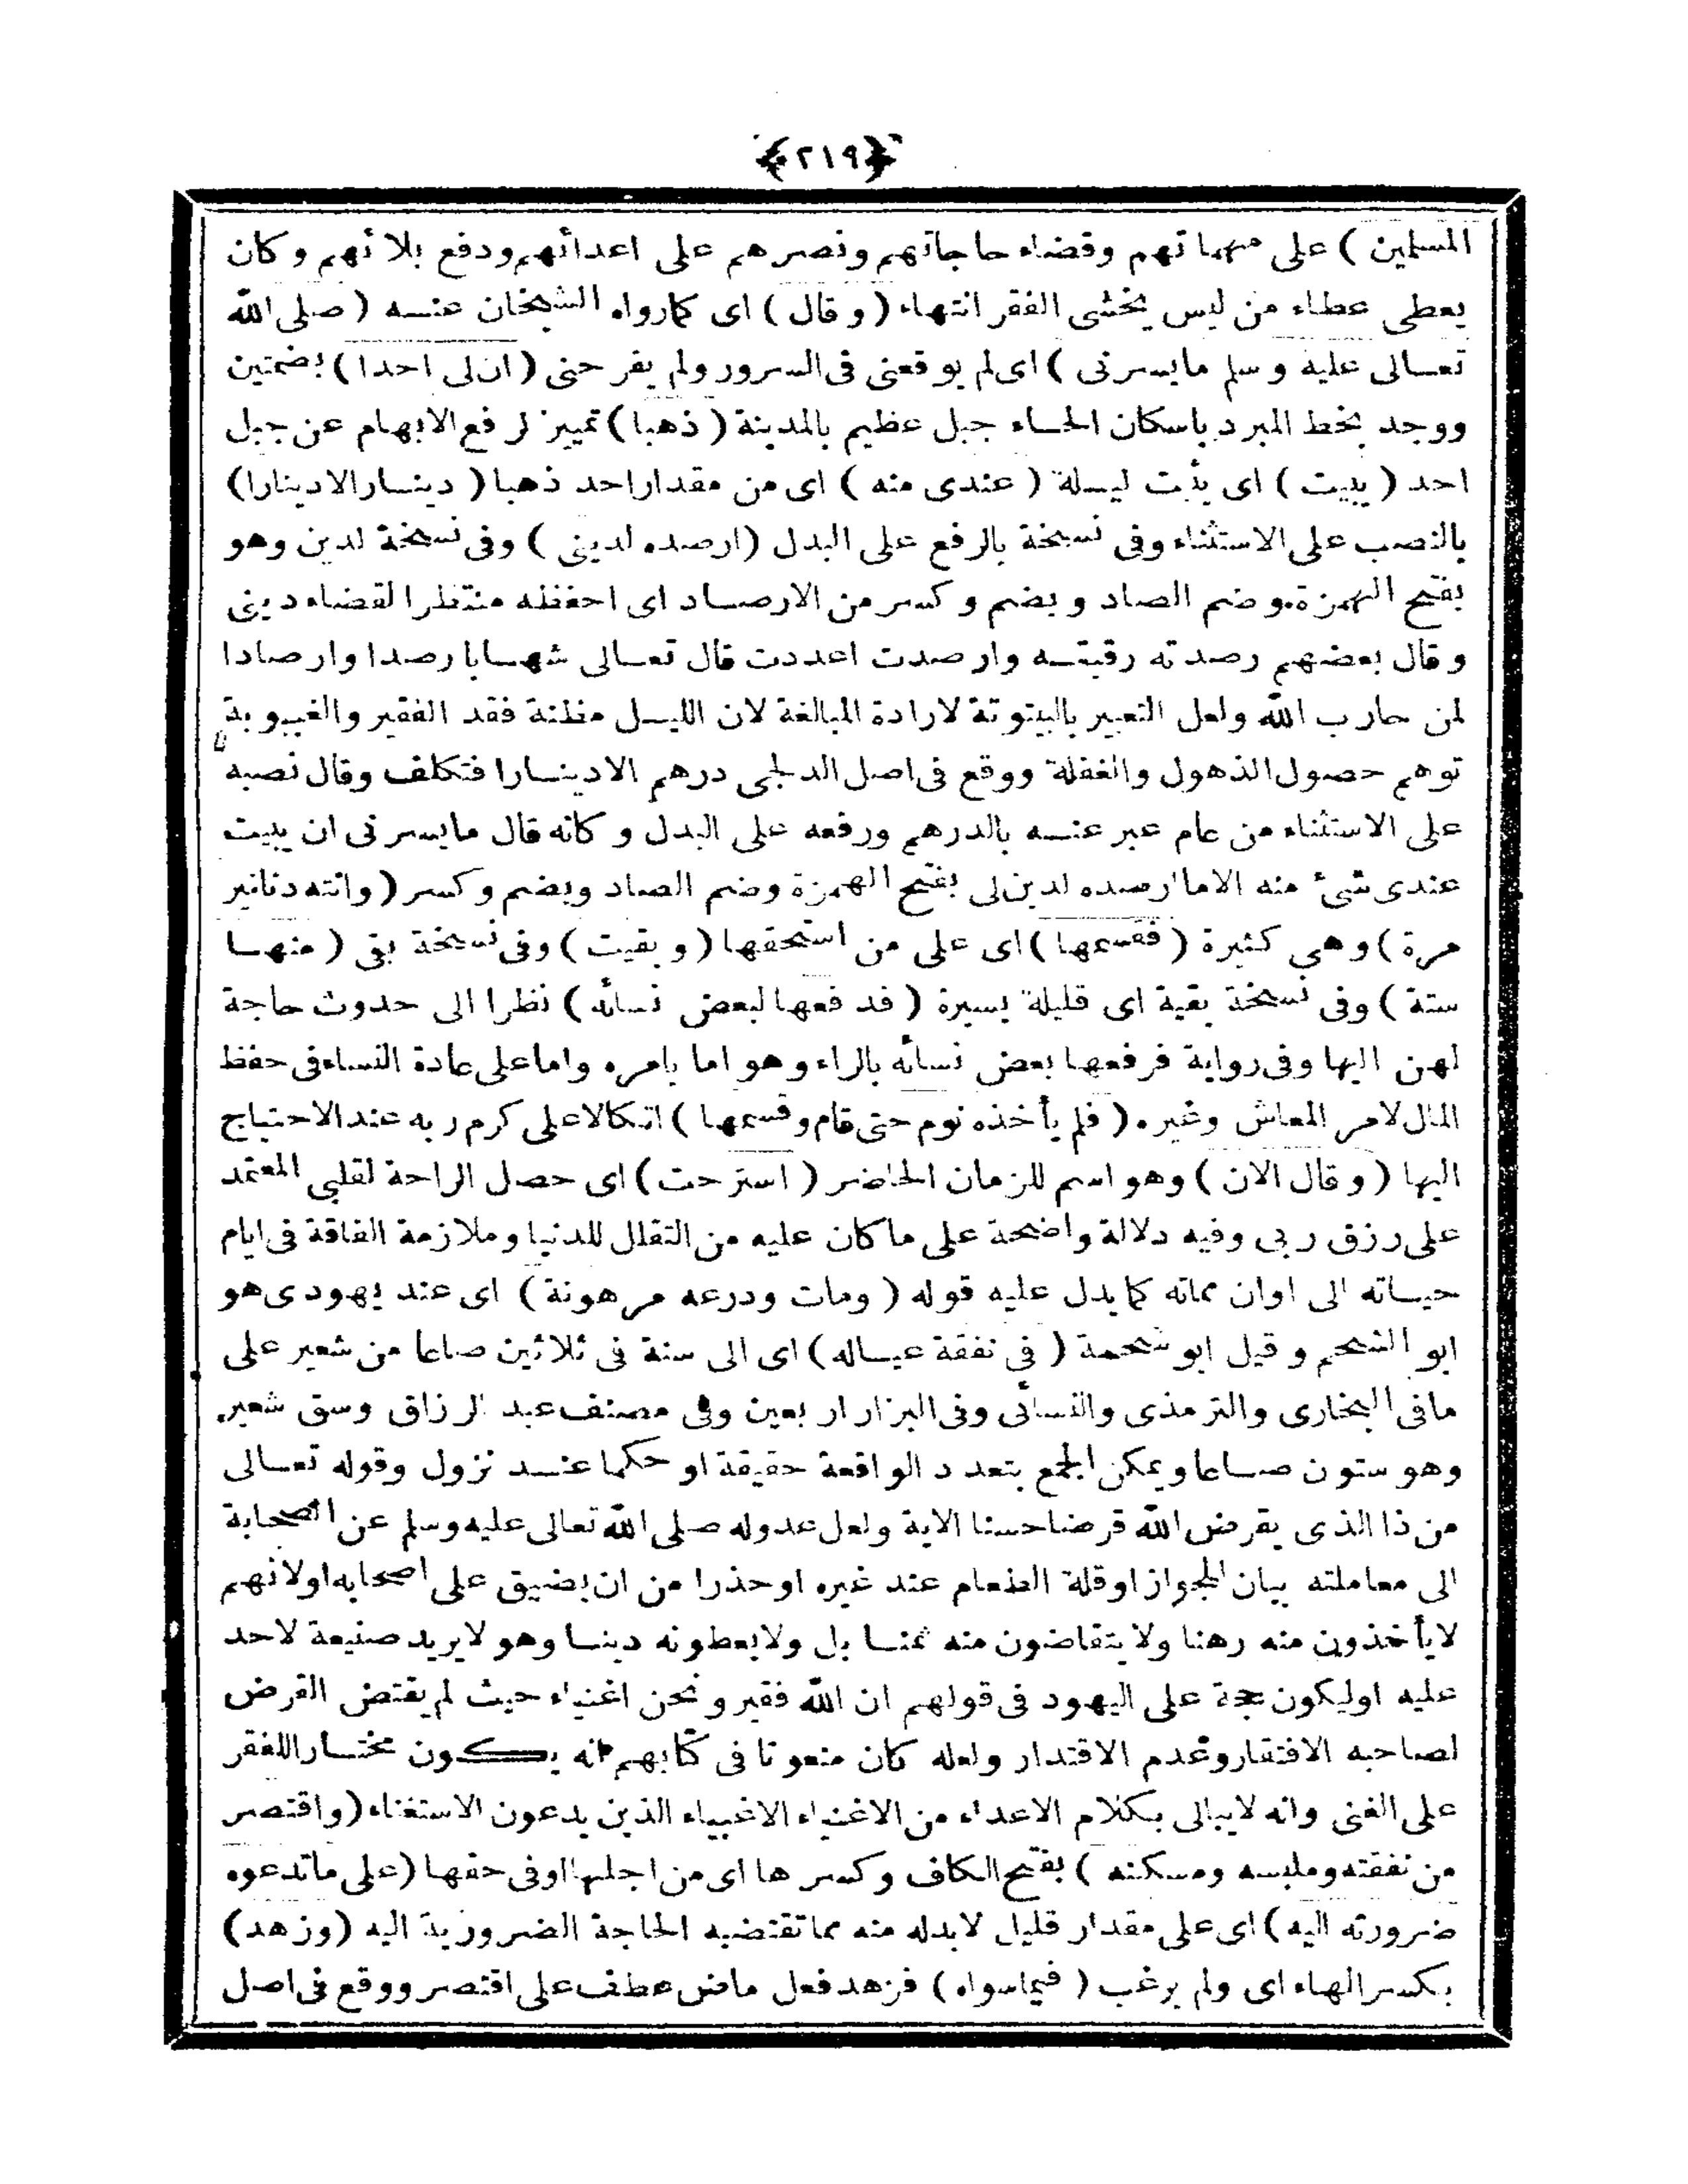 ﴿٢١٩﴾
المسلمين ) على مهماتهم وقضاء حاجاتهم ونصرهم على اعدائهم ودفع بلائهم وكان
يعطى عطاء من ليس يخشى الفقر انتهاء ( وقال ) اى كما رواه الشيخان عنه ( صلى الله
تعالى عليه وسلم ما يسرنى ) اى لم يوقعنى فى السرور ولم يفرحنى ( ان لى احدا ) بضمتين
ووجد بخط المبرد باسكان الحاء جبل عظيم بالمدينة ( ذهبا ) تمييز لرفع الابهام عن جبل
احد ( يبيت ) اى يثبت ليلة ( عندى منه ) اى من مقدار احد ذهبا ( دينار الا دينارا )
بالنصب على الاستثناء وفى نسخة بالرفع على البدل ( ارصده لدينى ) وفى نسخة لدين وهو
بفتح الهمزة وضم الصاد وبضم وكسر من الارصاد اى احفظه منتظرا لقضاء دينى
وقال بعضهم رصدته رقبته وارصدت اعددت قال تعالى شهابا رصدا وارصادا
لمن حارب الله ولعل التعبير بالبيتوتة لارادة المبالغة لان الليل مظنة فقد الفقير والغيبوبة
توهم حصول الذهول والغفلة ووقع فى اصل الدلجى درهم الا دينارا فتكلف وقال نصبه
على الاستثناء من عام عبر عنه بالدرهم ورفعه على البدل وكانه قال ما يسرنى ان يبيت
عندى شئ منه الا ما ارصده لدين لى بفتح الهمزة وضم الصاد وبضم وكسر ( واتته دنانير
مرة ) وهى كثيرة ( فقسمها ) اى على من استحقها ( وبقيت ) وفى نسخة بقى ( منها
ستة ) وفى نسخة بقية اى قليلة يسيرة ( فدفعها لبعض نسائه ) نظرا الى حدوث حاجة
لهن اليها وفى رواية فرفعها بعض نسائه بالراء وهو اما بامره واما على عادة النساء فى حفظ
المال لامر المعاش وغيره ( فلم يأخذه نوم حتى قام وقسمها ) اتكالا على كرم ربه عند الاحتياج
اليها ( وقال الان ) وهو اسم للزمان الحاضر ( استرحت ) اى حصل الراحة لقلبى المعتمد
على رزق ربى وفيه دلالة واضحة على ما كان عليه من التقلل للدنيا وملازمة الفاقة فى ايام
حياته الى اوان مماته كما يدل عليه قوله ( ومات ودرعه مرهونة ) اى عند يهودى هو
ابو الشحم وقيل ابو شحمة ( فى نفقة عياله ) اى الى سنة فى ثلاثين صاعا من شعير على
ما فى البخارى والترمذى والنسائى وفى البزار اربعين وفى مصنف عبد الرزاق وسق شعير
وهو ستون صاعا ويمكن الجمع بتعدد الواقعة حقيقة او حكما عند نزول وقوله تعالى
من ذا الذى يقرض الله قرضا حسنا الاية ولعل عدوله صلى الله تعالى عليه وسلم عن الصحابة
الى معاملته بيان للجواز او قلة الطعام عند غيره او حذرا من ان يضيق على اصحابه او لانهم
لا يأخذون منه رهنا ولا يتقاضون منه ثمنا بل ولا يعطونه دينا وهو لا يريد صنيعة لاحد
عليه او ليكون حجة على اليهود فى قولهم ان الله فقير ونحن اغنياء حيث لم يقتض القرض
لصاحبه الافتقار وعدم الاقتدار ولعله كان منعوتا فى كتابهم انه يكون مختارا للفقر
على الغنى وانه لا يبالى بكلام الاعداء من الاغنياء الاغبياء الذين يدعون الاستغناء ( واقتصر
من نفقته وملبسه ومسكنه ) بفتح الكاف وكسرها اى من اجلها او فى حقها ( على ما تدعوه
ضرورته اليه ) اى على مقدار قليل لا بد له منه مما تقتضيه الحاجة الضرورية اليه ( وزهد )
بكسر الهاء اى ولم يرغب ( فيما سواه ) فزهد فعل ماض عطف على اقتصر ووقع فى اصل